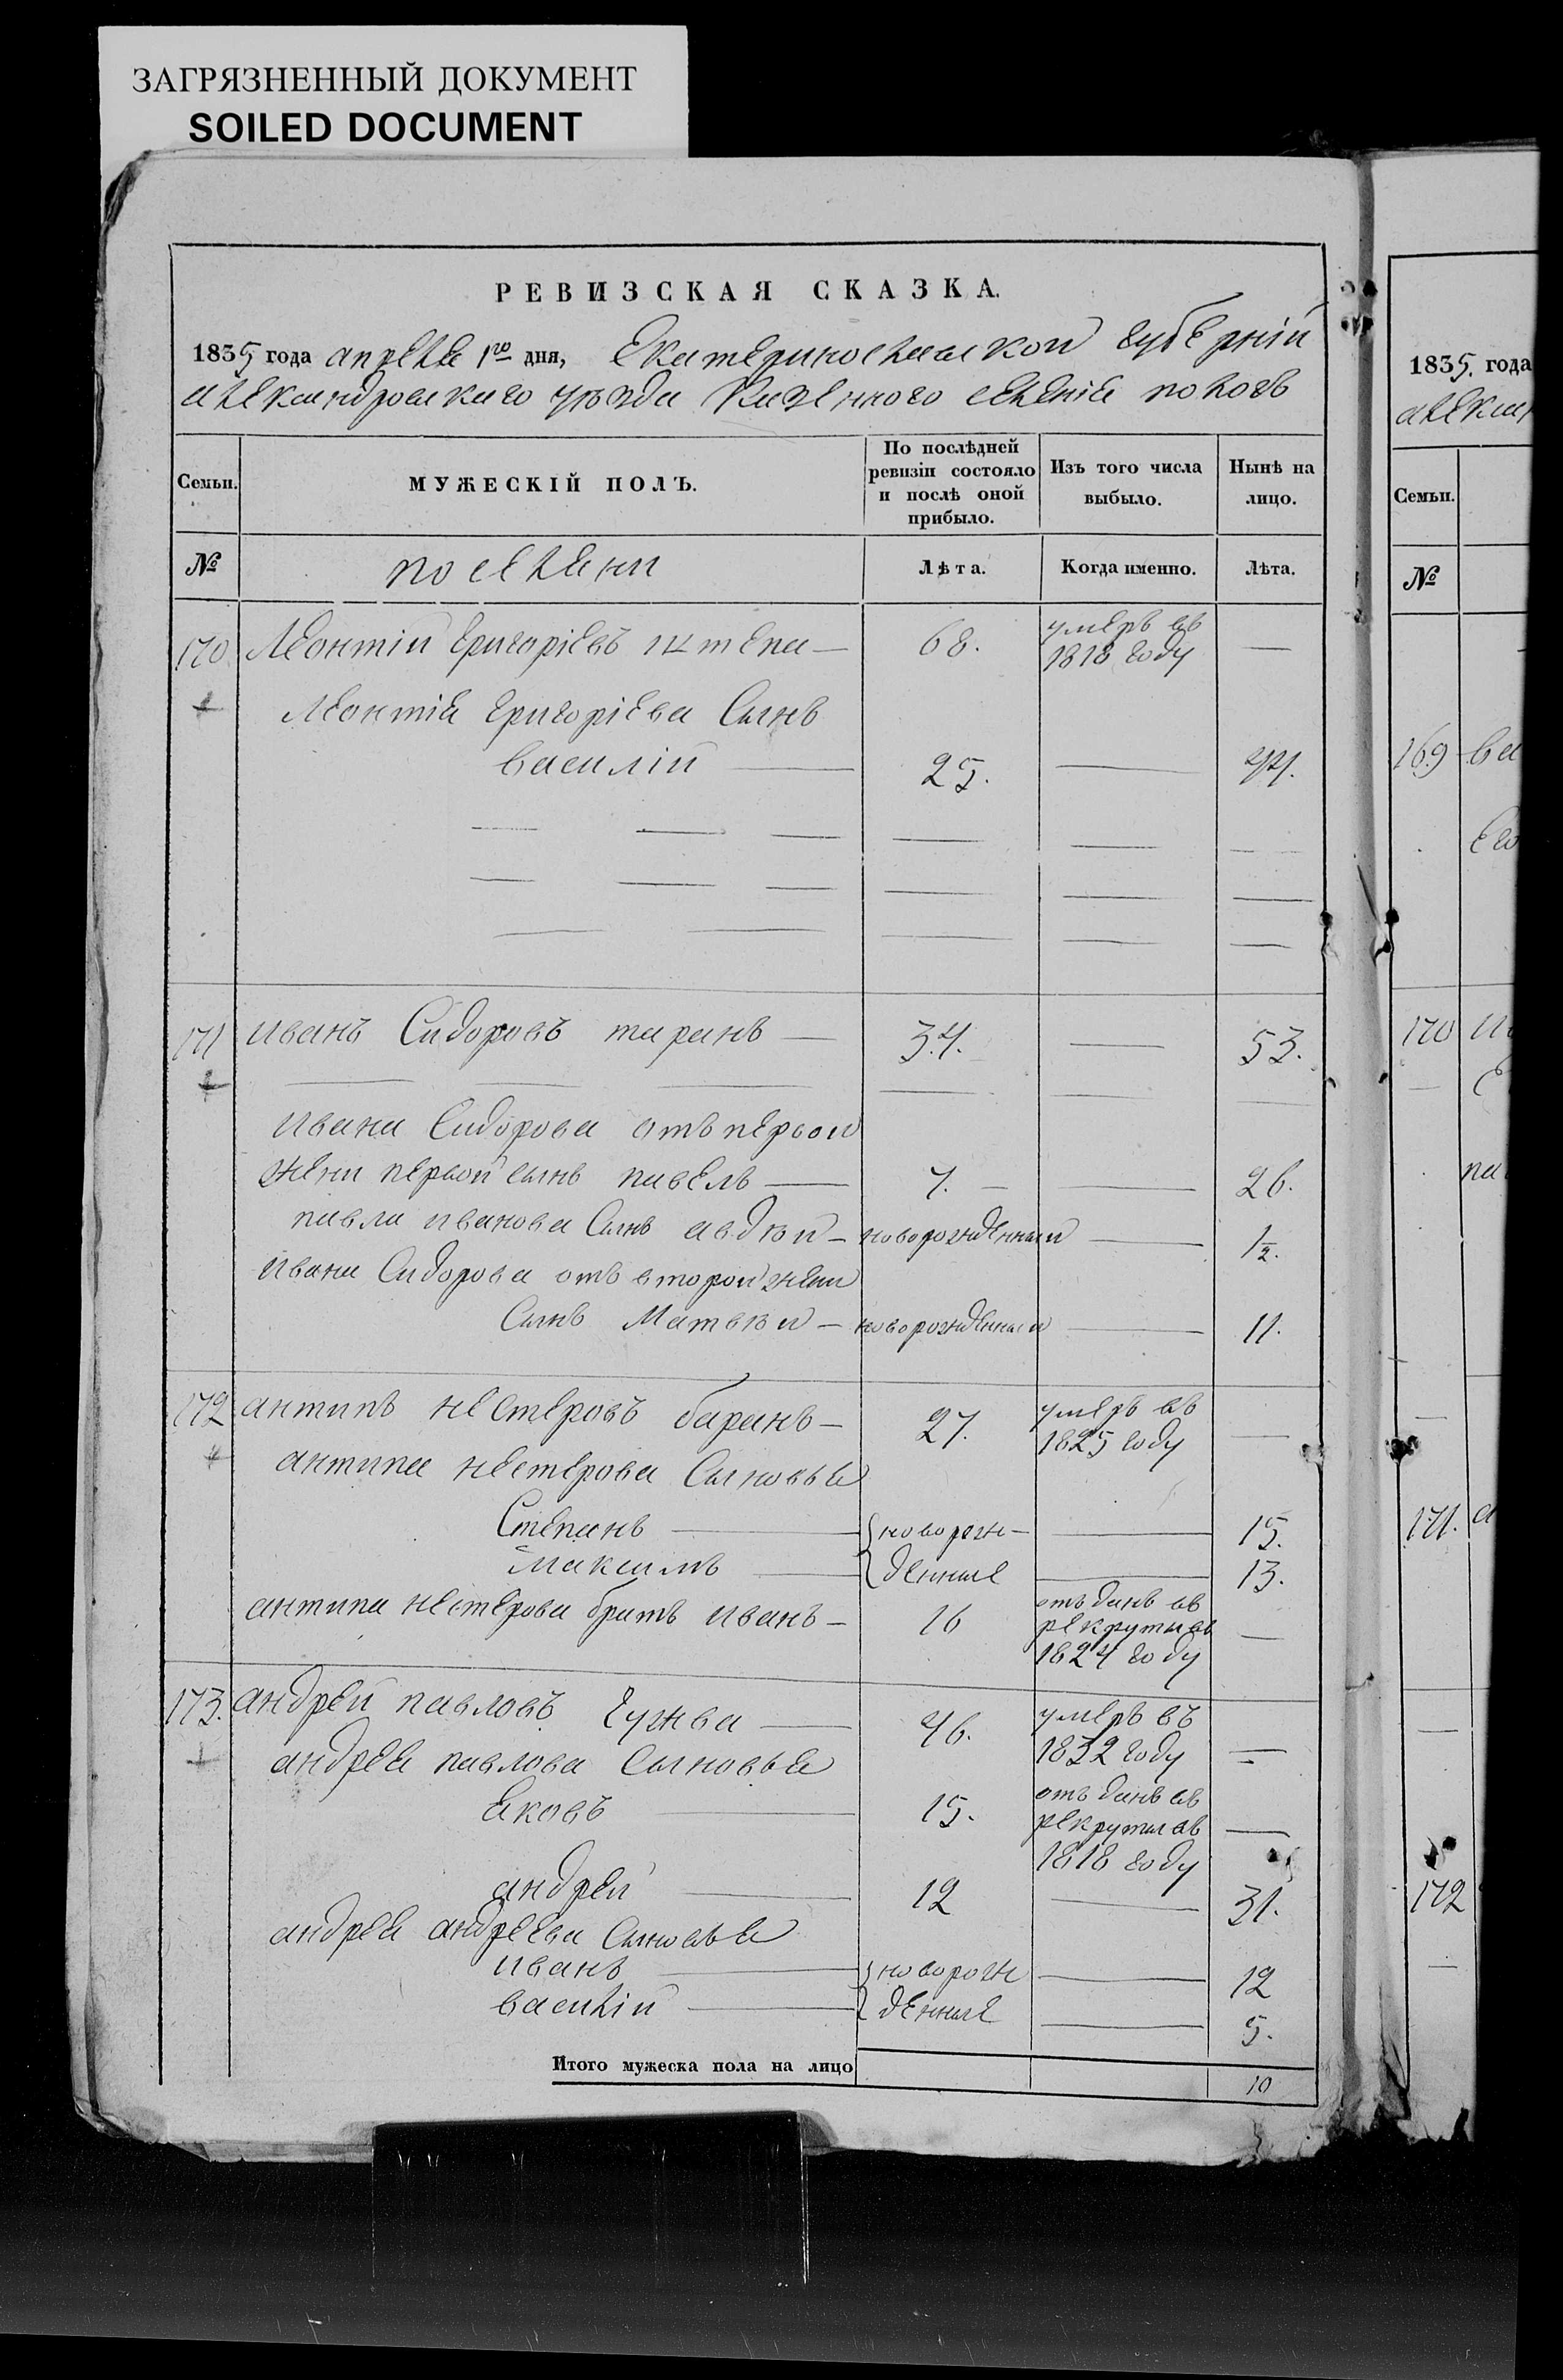 ЗАГРЯЗНЕННЫЙ ДОКУМЕНТ
SOILED DOCUMENT
РЕВИЗСКАЯ СКАЗКА.
1835 года апреля 1го дня, Екатеринославской губернiи
александровскаго уѣзда Казенного селенiя пологъ
Семьи. МУЖЕСКІЙ ПОЛЪ. По послѣдней ревизіи состояло и послѣ оной прибыло. Изъ того числа выбыло. Нынѣ на лицо.
№ поселяни Лѣта. Когда именно. Лѣта.
170. Леонтiй Григорiевъ 68. умеръ въ 1818 году —
Леонтiя Григорiева Сынъ
василiй — 25. — 44.
171 иванъ Сидоровъ таранъ — 34. — 53.
ивана Сидорова отъ первой
жени первой сынъ павелъ — 7. — — 26.
павла иванова Сынъ авдѣй — новорожденный — 1½.
ивана Сидорова отъ второй жени
Сынъ Матвѣй — новорожденный — 11.
172 антипъ нестеровъ баранъ — 27. умеръ въ 1825 году —
антипа нестерова Сыновья
Степанъ — новорож- — 15.
максимъ — денные — 13.
антипа нестерова братъ иванъ — 16 отъданъ въ рекруты въ 1824 году —
173. андрей павловъ гужва — 46. умеръ въ 1832 году —
андрея павлова сыновья
Яковъ — 15. отъданъ въ рекруты въ 1818 году —
андрей — 12 — 31.
андрея андреева сыновья
иванъ — новорож — 12
василiй — денные — 5.
Итого мужеска пола на лицо 10
1835. года
алексан
Семьи.
№
169 ва
Его
170
па
171. а
172